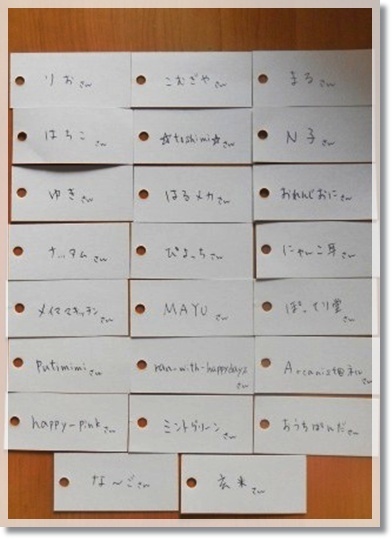 りおさん
こむぎやさん
まるさん
はちこさん
☆toshimi☆さん
N子さん
ゆきさん
はるメカさん
おれんじおにさん
ナッタムさん
ぴよっちさん
にゃんこ耳さん
メイママキッチンさん
MAYUさん
ぽってり雲さん
Putimimiさん
ran-with-happydaysさん
さん
happy-pinkさん
ミントグリーンさん
おうちぱんださん
な〜ごさん
玄米さん